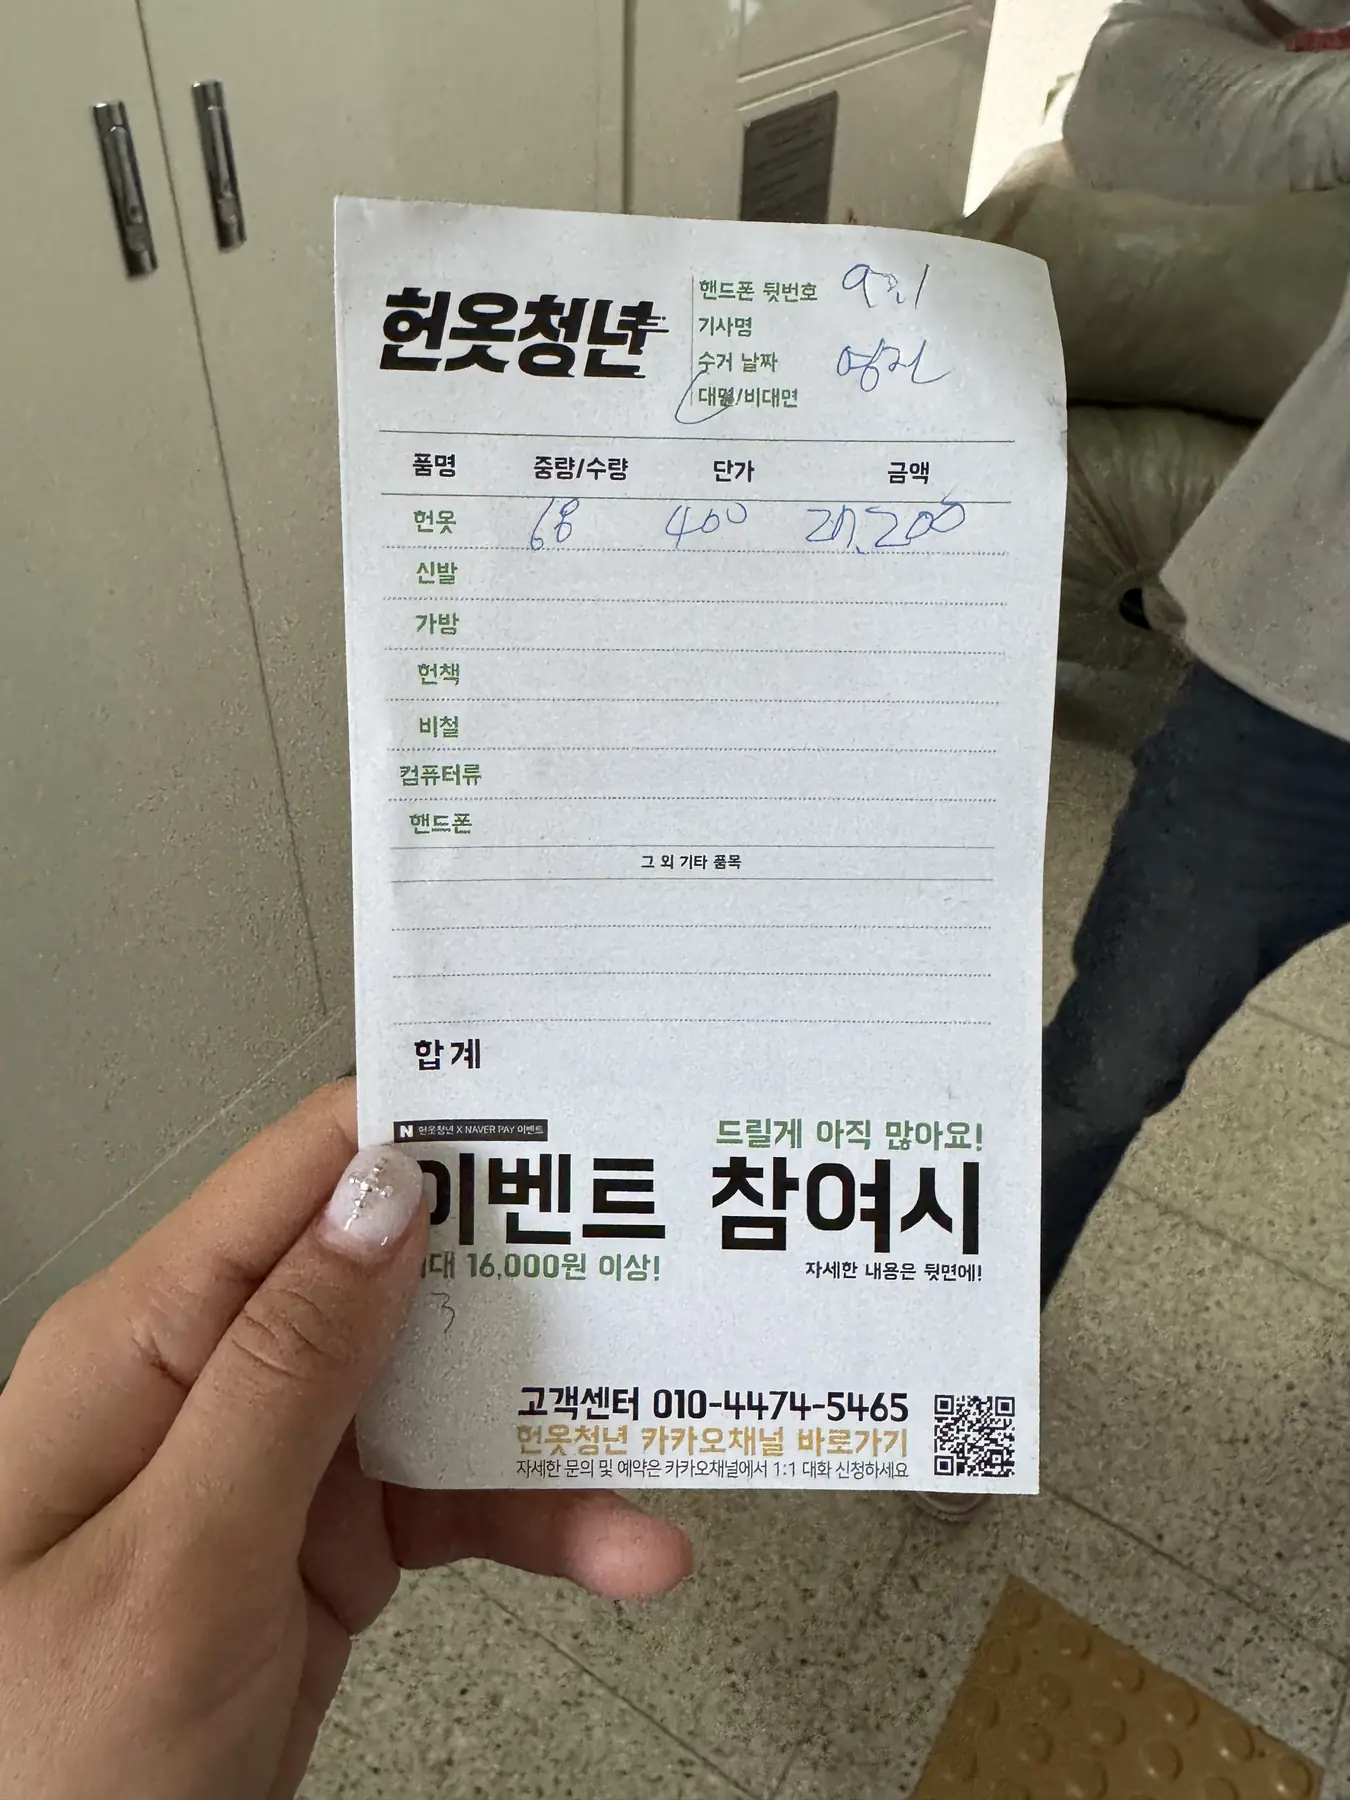 헌옷청년
핸드폰 뒷번호
기사명
수거 날짜
대면/비대면
품명 중량/수량 단가 금액
헌옷 68 400 27,200
신발
가방
헌책
비철
컴퓨터류
핸드폰
그 외 기타 품목
합계
N 헌옷청년 X NAVER PAY 이벤트
드릴게 아직 많아요!
이벤트 참여시
16,000원 이상!
자세한 내용은 뒷면에!
3
고객센터 010-4474-5465
헌옷청년 카카오채널 바로가기
자세한 문의 및 예약은 카카오채널에서 1:1 대화 신청하세요